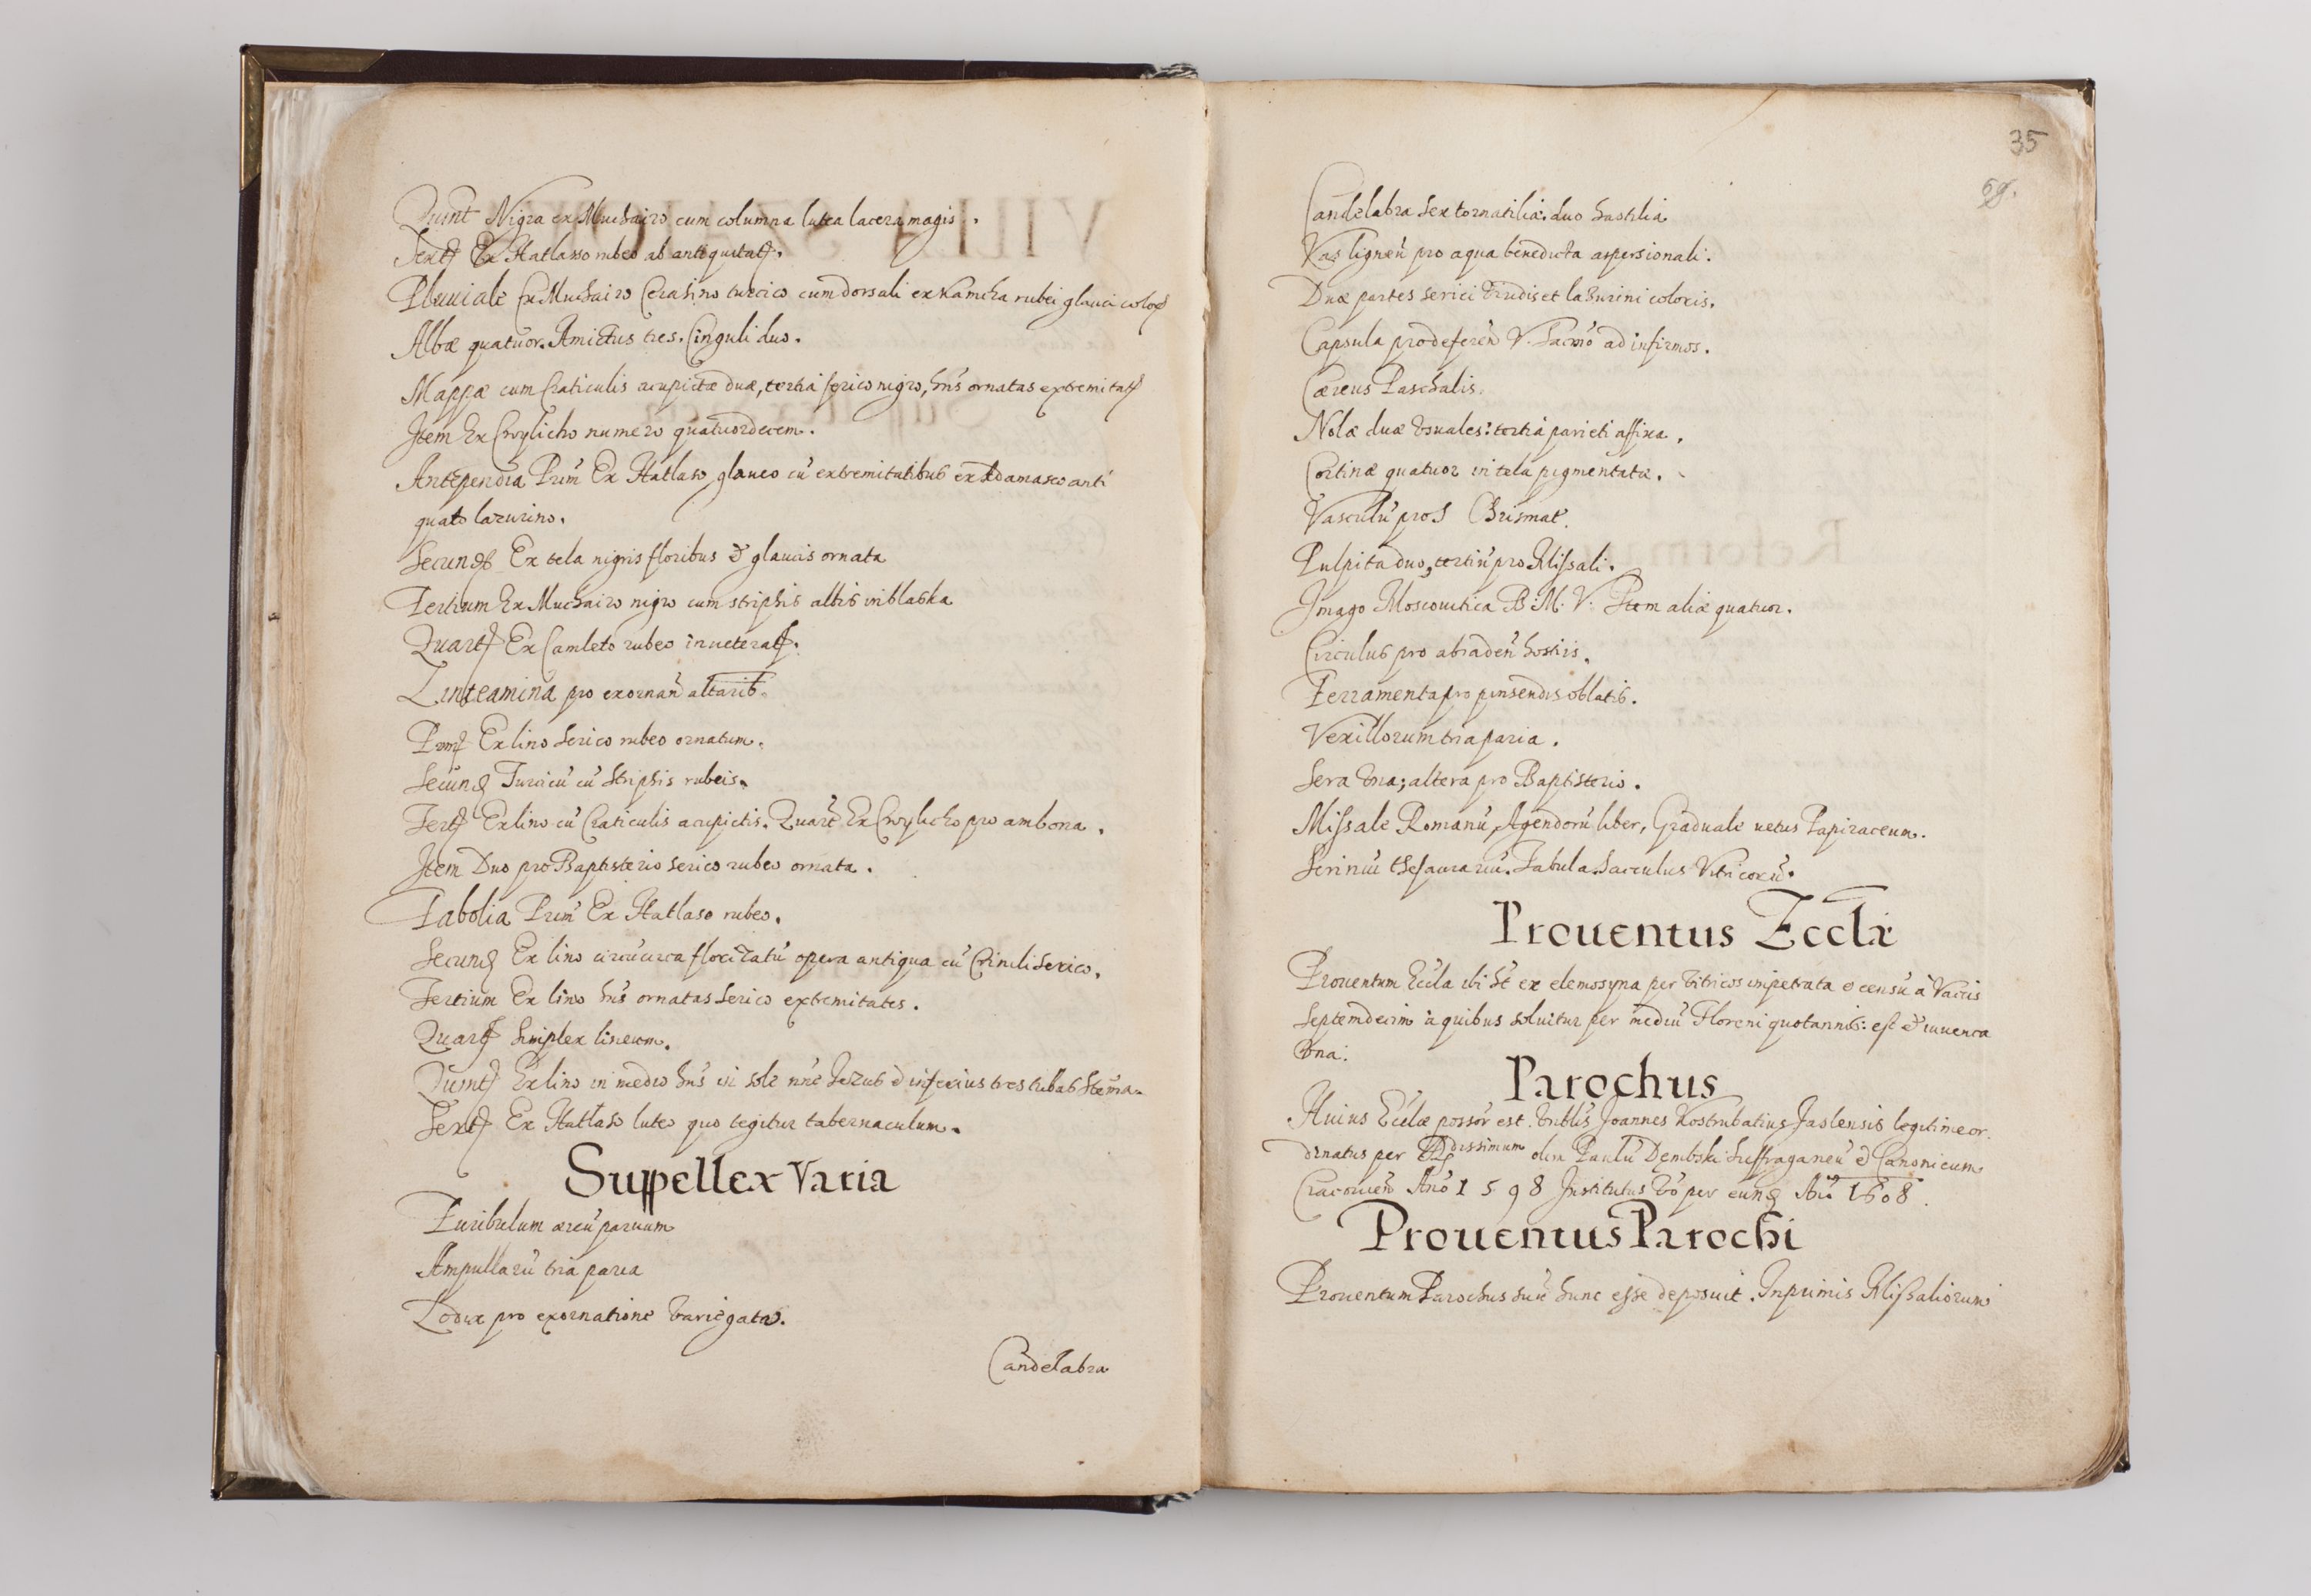 Quint Nigra ex Muchairo cum columna lutea lacera magis.
Ex Hatlasso rubeo ab antiquitat.
Pluuiale Ex Muchairo Cerasino turcico cum dorsali ex Kamcha rubei glauci color
Albæ quatuor. Amictus tres. Cinguli duo.
Mappæ cum Craticulis acupictæ duæ, tertia serico nigro, hñs ornatas extremitat
Item Ex Cwylicho numero quatuordecem.
Antependia Prim̃ Ex Hatlaso glauco cũ extremitatibus ex Adamasco anti
quato lazurino.
Secund Ex tela nigris floribus & glaucis ornata
Tertium Ex Muchairo nigro cum striphis albis in blaska
Quart Ex Camleto rubeo inueterat.
Linteamina pro exornañ altarib.
Prim Ex lino Serico rubeo ornatum.
Secund Turcicũ cũ Striphis rubeis.
Tert Ex lino cũ Craticulis acupictis. Quart̃ Ex Cwylicho pro ambona.
Item Duo pro Baptisterio Serico rubeo ornata.
Pabolia Prim̃ Ex Hatlaso rubeo.
Secund Ex lino opera antiqua cũ Serico.
Tertium Ex lino hñs ornatas Serico extremitates.
Quart Simplex lineum.
Quint Ex lino in medio hñs in sole Iezus & inferius tres tubas Stem̃a.
Sext Ex Hatlaso luteo quo tegitur tabernaculum.
Suppellex Varia
Turibulum æreũ paruum
Ampullarũ tria paria
Lodix pro exornatione variegata.
Candelabra
35
69.
Candelabra Sex tornatilia. duo hastilia
Vas ligneũ pro aqua benedicta aspersionali.
Duæ partes Serici viridis et lazurini coloris.
Capsula pro deferen̄ V. Sacrō ad infirmos.
Cæreus Paschalis.
Nolæ duæ vsuales: tertia parieti affixa.
Cortinæ quatuor in tela pigmentatæ.
Vasculũ pro S Chrismat.
Pulpita duo, tertiũ pro Missali.
Imago Moscouitica B. M. V. Item aliæ quatuor.
Circulus pro abraden̄ hostiis.
Ferramenta pro pinsendis oblatis.
Vexillorum tria paria.
Sera vna; altera pro Baptisterio.
Missale Romanũ, Agendorũ liber, Graduale uetus Papiraceum.
Scriniũ thesaurariũ. Tabula. Sacculus Vitricorũ.
Prouentus Ecclæ
Prouentum Eccla ex elemosyna per vitricos impetrata & censũ à Vaccis
Septemdecim à quibus soluitur per mediũ Floreni quotannis: est & iuuenca
vna.
Parochus
Huius Ecclæ possor̃ est Joannes Kostrubatius Jaslensis legitime or
dinatus per Rdissimum olim Paulũ Dembski Suffraganeũ & Canonicum
Cracouien̄ Anõ 1598 Institutus võ per eund Anõ 1608.
Prouentus Parochi
Prouentum Parochus suũ hunc esse deposuit. Inprimis Missaliorum